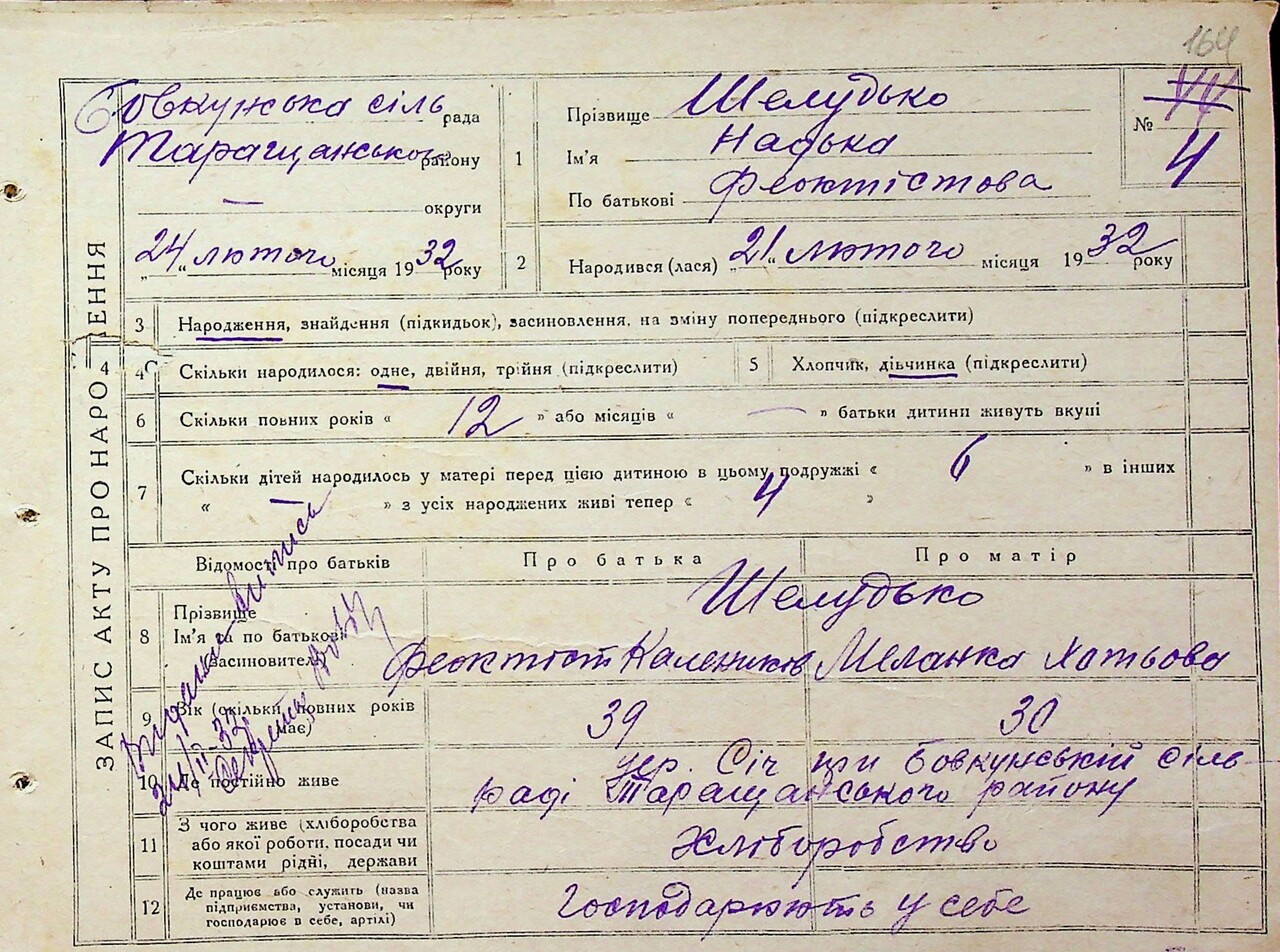 164
Бовкунська сіль рада
Таращанського району
— округи
„24“ лютого місяця 1932 року
1
Прізвище Шелудько
Ім'я Надька
По батькові Феоктістова
№ 4
2
Народився (лася) „21“ лютого місяця 1932 року
ЗАПИС АКТУ ПРО НАРО ЕННЯ
3 Народження, знайдення (підкидьок), засиновлення, на зміну попереднього (підкреслити)
4 Скільки народилося: одне, двійня, трійня (підкреслити)
5 Хлопчик, дівчинка (підкреслити)
6 Скільки повних років « 12 » або місяців « — » батьки дитини живуть вкупі
7 Скільки дітей народилось у матері перед цією дитиною в цьому подружжі « 6 » в інших
« — » з усіх народжених живі тепер « 4 »
Відомості про батьків
Про батька
Про матір
8 Прізвище
Ім'я та по батькові
засиновитель
Шелудько
Феоктіст Калеників
Меланка Хотьова
9 Вік (скільки повних років має)
39
30
10 Де постійно живе
хут. Січ при Бовкунській сіль-
раді Таращанського району
11 З чого живе (хліборобства
або якої роботи, посади чи
коштами рідні, держави
Хліборобство
12 Де працює або служить (назва
підприємства, установи, чи
господарює в себе, артілі)
Господарюють у себе
24/II-32